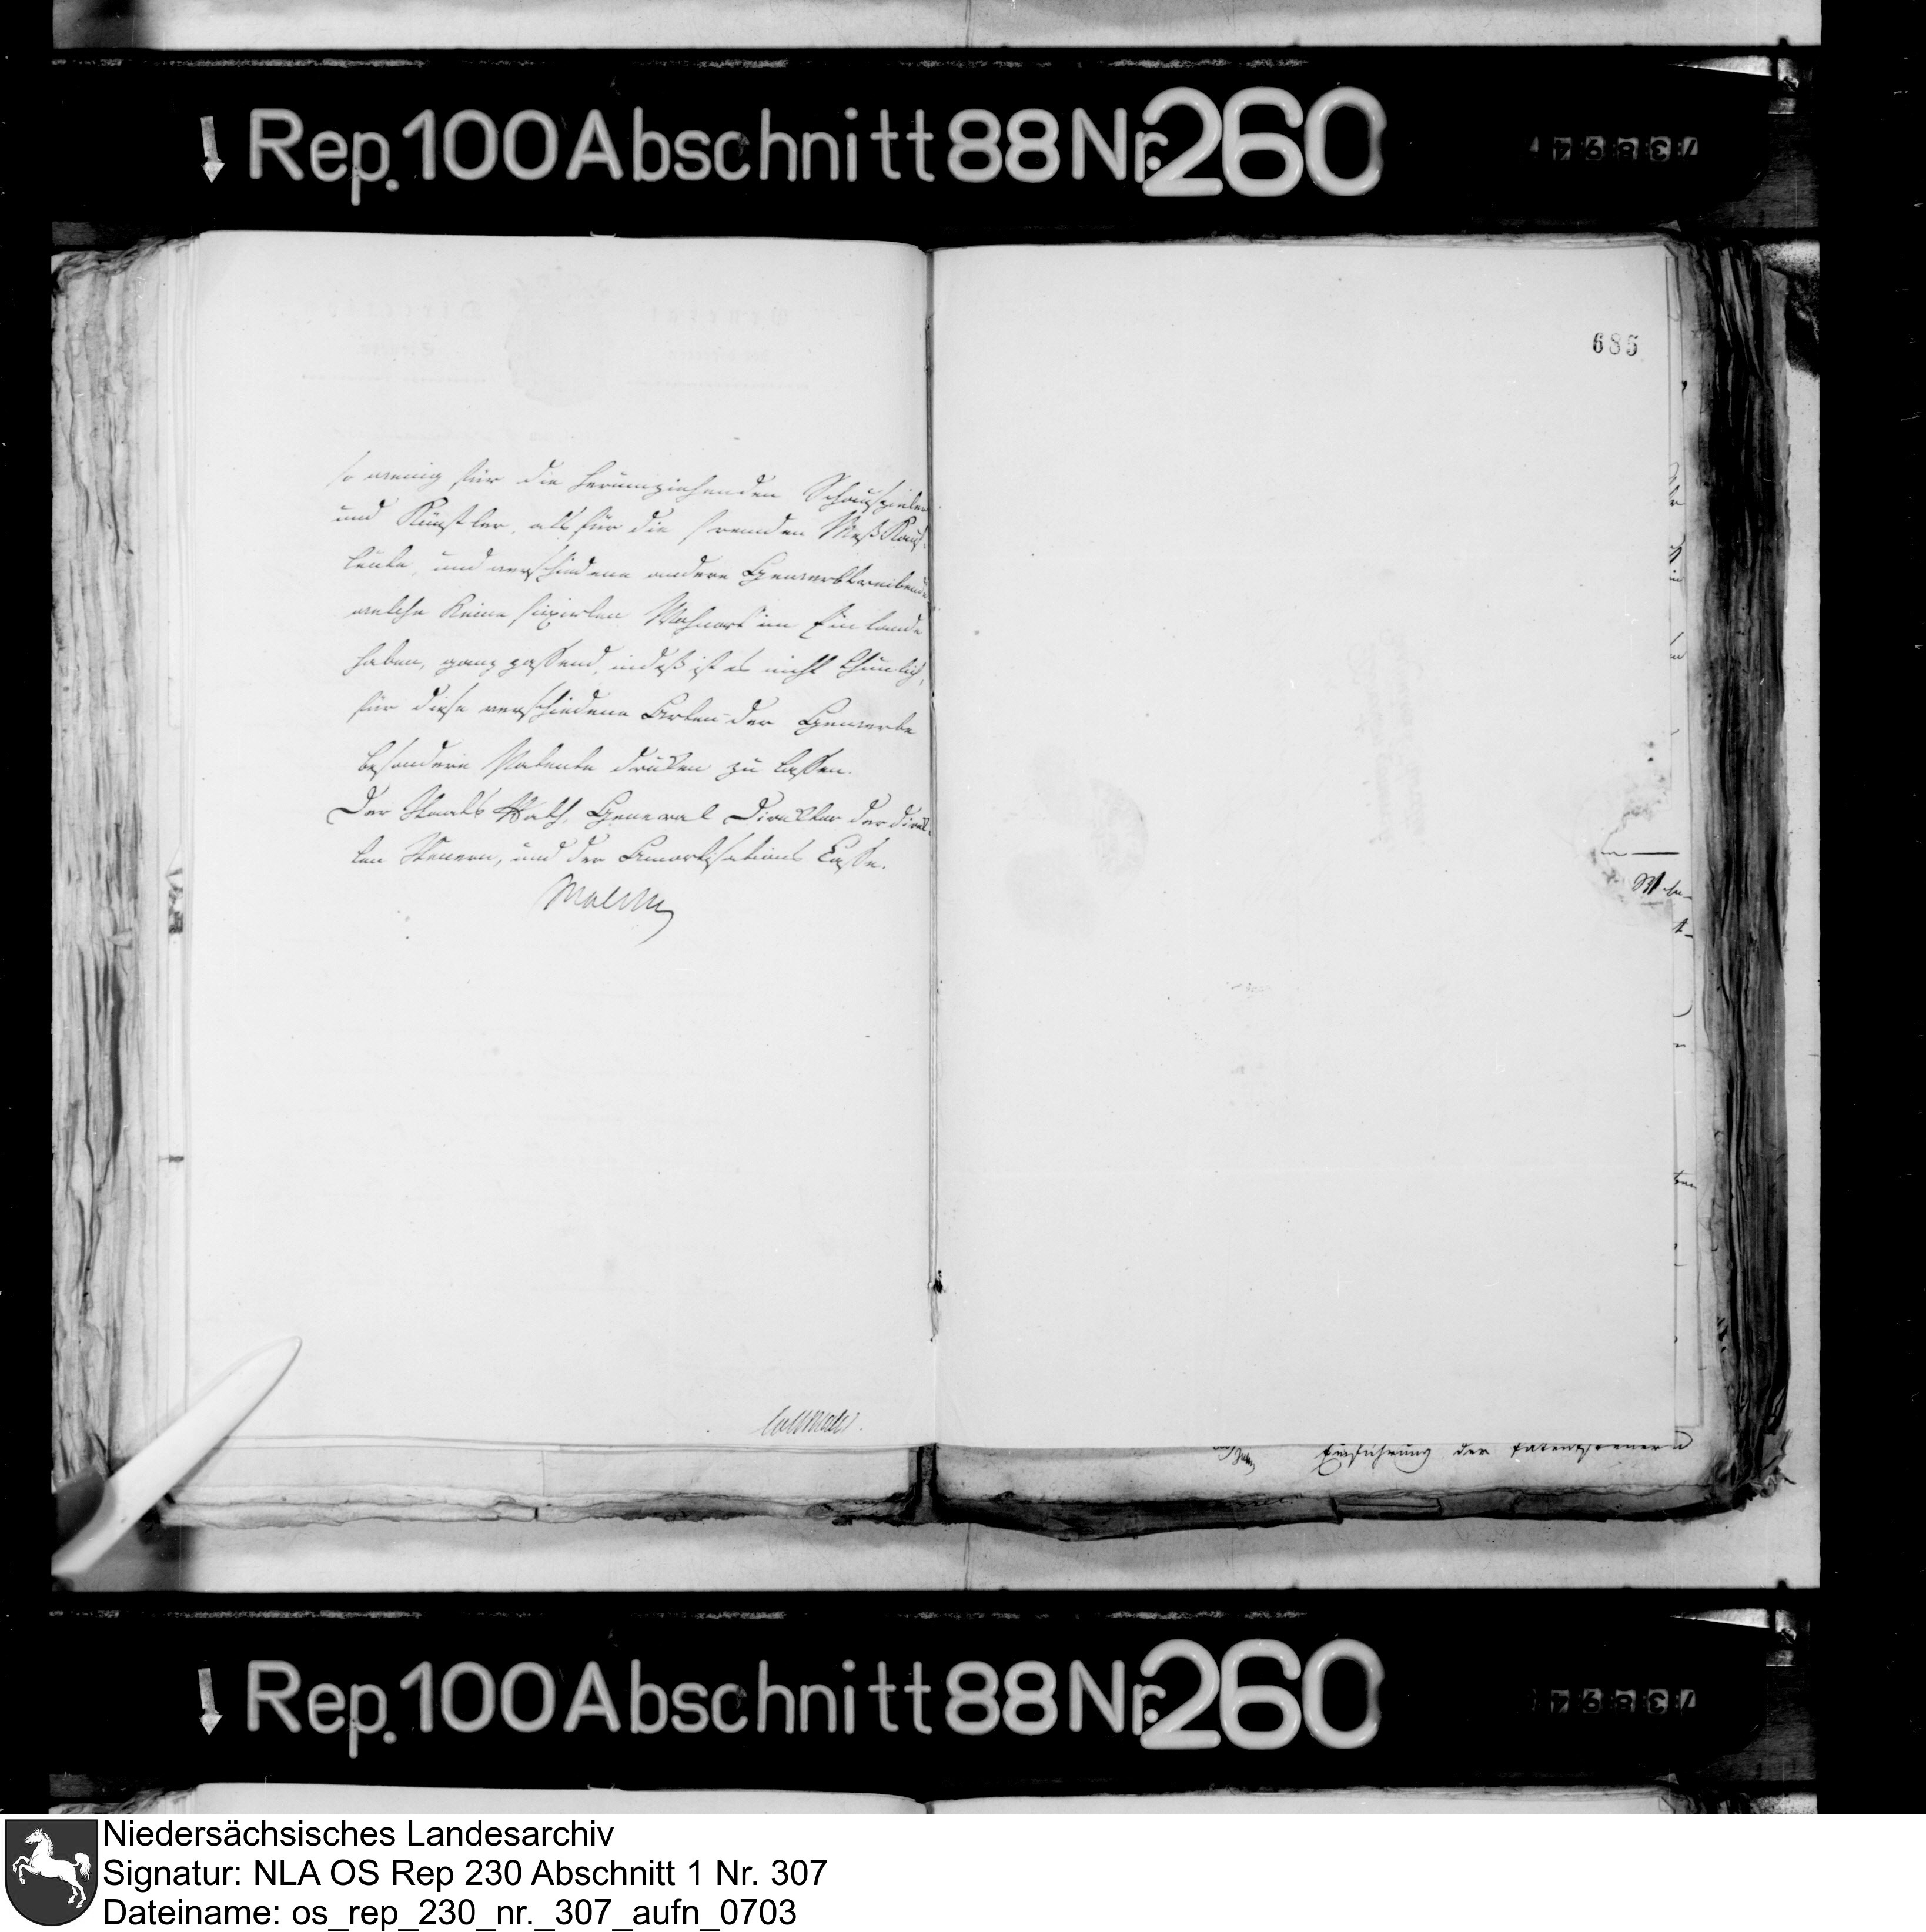 Rep. 100 Abschnitt 88 Nr. 260
685
so wenig für die herumziehenden Schauspieler
und Künstler, als für die fremden Meß Kauf-
leute, und verschiedene andere Gewerbtreibende
welche keine fixirten Wohnort im Einlande
haben, ganz passend, indeß ist es nicht thunlich,
für diese verschiedene Arten der Gewerbe
besondere Patente drucken zu lassen.
Der Staats Rath, General Direktor der direk-
ten Steuern, und der Amortisations Casse.
Malchus
Einführung der Patentsteuer
Rep. 100 Abschnitt 88 Nr. 260
Niedersächsisches Landesarchiv
Signatur: NLA OS Rep 230 Abschnitt 1 Nr. 307
Dateiname: os_rep_230_nr._307_aufn_0703